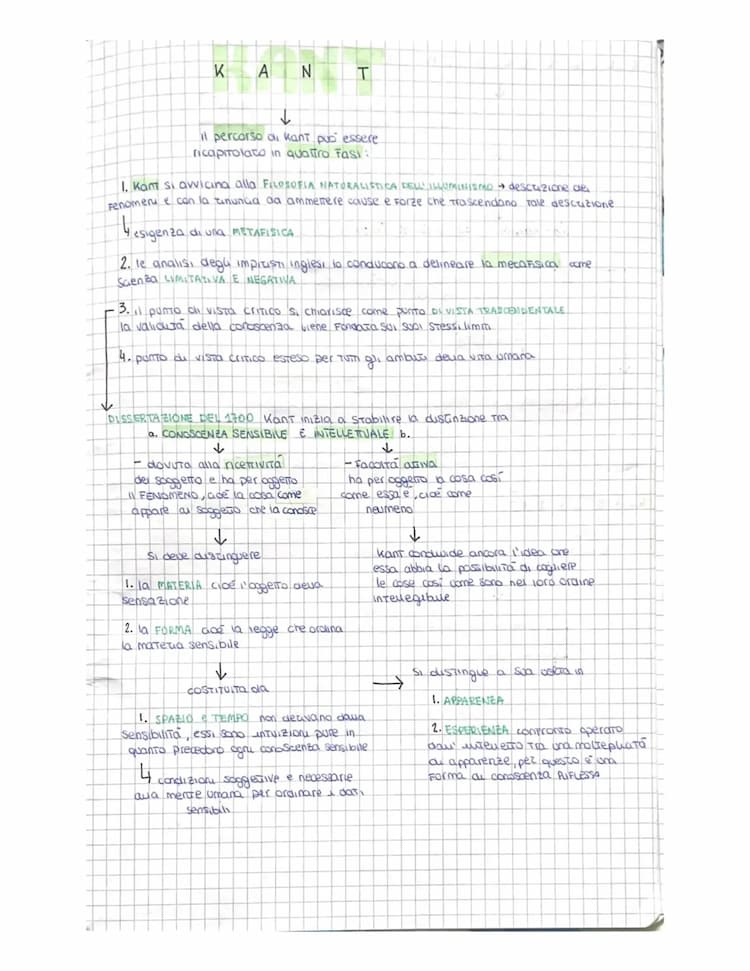 K A N T
il percorso di Kant può essere
ricapitolato in quattro fasi:
1. Kant si avvicina alla FILOSOFIA NATURALISTICA DELL'ILLUMINISMO → descrizione dei
fenomeni e con la rinuncia da ammettere cause e forze che trascendano tale descrizione
esigenza di una METAFISICA
2. le analisi degli empiristi inglesi lo conducono a delineare la metafisica come
scienza LIMITATIVA E NEGATIVA
3. il punto di vista critico si chiarisce come punto DI VISTA TRASCENDENTALE
la validità della conoscenza viene fondata sui suoi stessi limiti
4. punto di vista critico esteso per tutti gli ambiti della vita umana
DISSERTAZIONE DEL 1700 Kant inizia a stabilire la distinzione tra
a. CONOSCENZA SENSIBILE E INTELLETTUALE b.
- dovuta alla ricettività
del soggetto e ha per oggetto
il FENOMENO, cioè la cosa come
appare al soggetto che la conosce
- Facoltà attiva
ha per oggetto la cosa così
come essa è, cioè come
neumeno
Si deve distinguere
1. la MATERIA cioè l'oggetto della
sensazione
2. la FORMA cioè la legge che ordina
la materia sensibile
Kant condivide ancora l'idea che
essa abbia la possibilità di cogliere
le cose così come sono nel loro ordine
intellegibile
COSTITUITA DA
1. SPAZIO e TEMPO non derivano dalla
sensibilità, essi sono intuizioni pure in
quanto precedono ogni conoscenza sensibile
condizioni soggettive e necessarie
alla mente umana per ordinare i dati
sensibili
Si distingue a sua volta in
1. APPARENZA
2. ESPERIENZA confronto operato
dall'intelletto tra una molteplicità
di apparenze, per questo è una
forma di conoscenza RIFLESSA